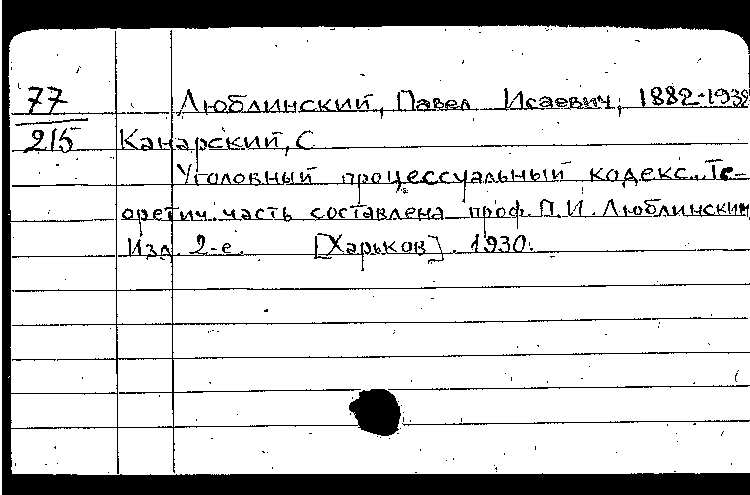 77 Люблинский, Павел Исаевич, 1882-1938
215 Канарский, С
Уголовный процессуальный кодекс. Те-
оретич. часть составлена проф. П.И. Люблинским
Изд. 2-е. [Харьков]. 1930.